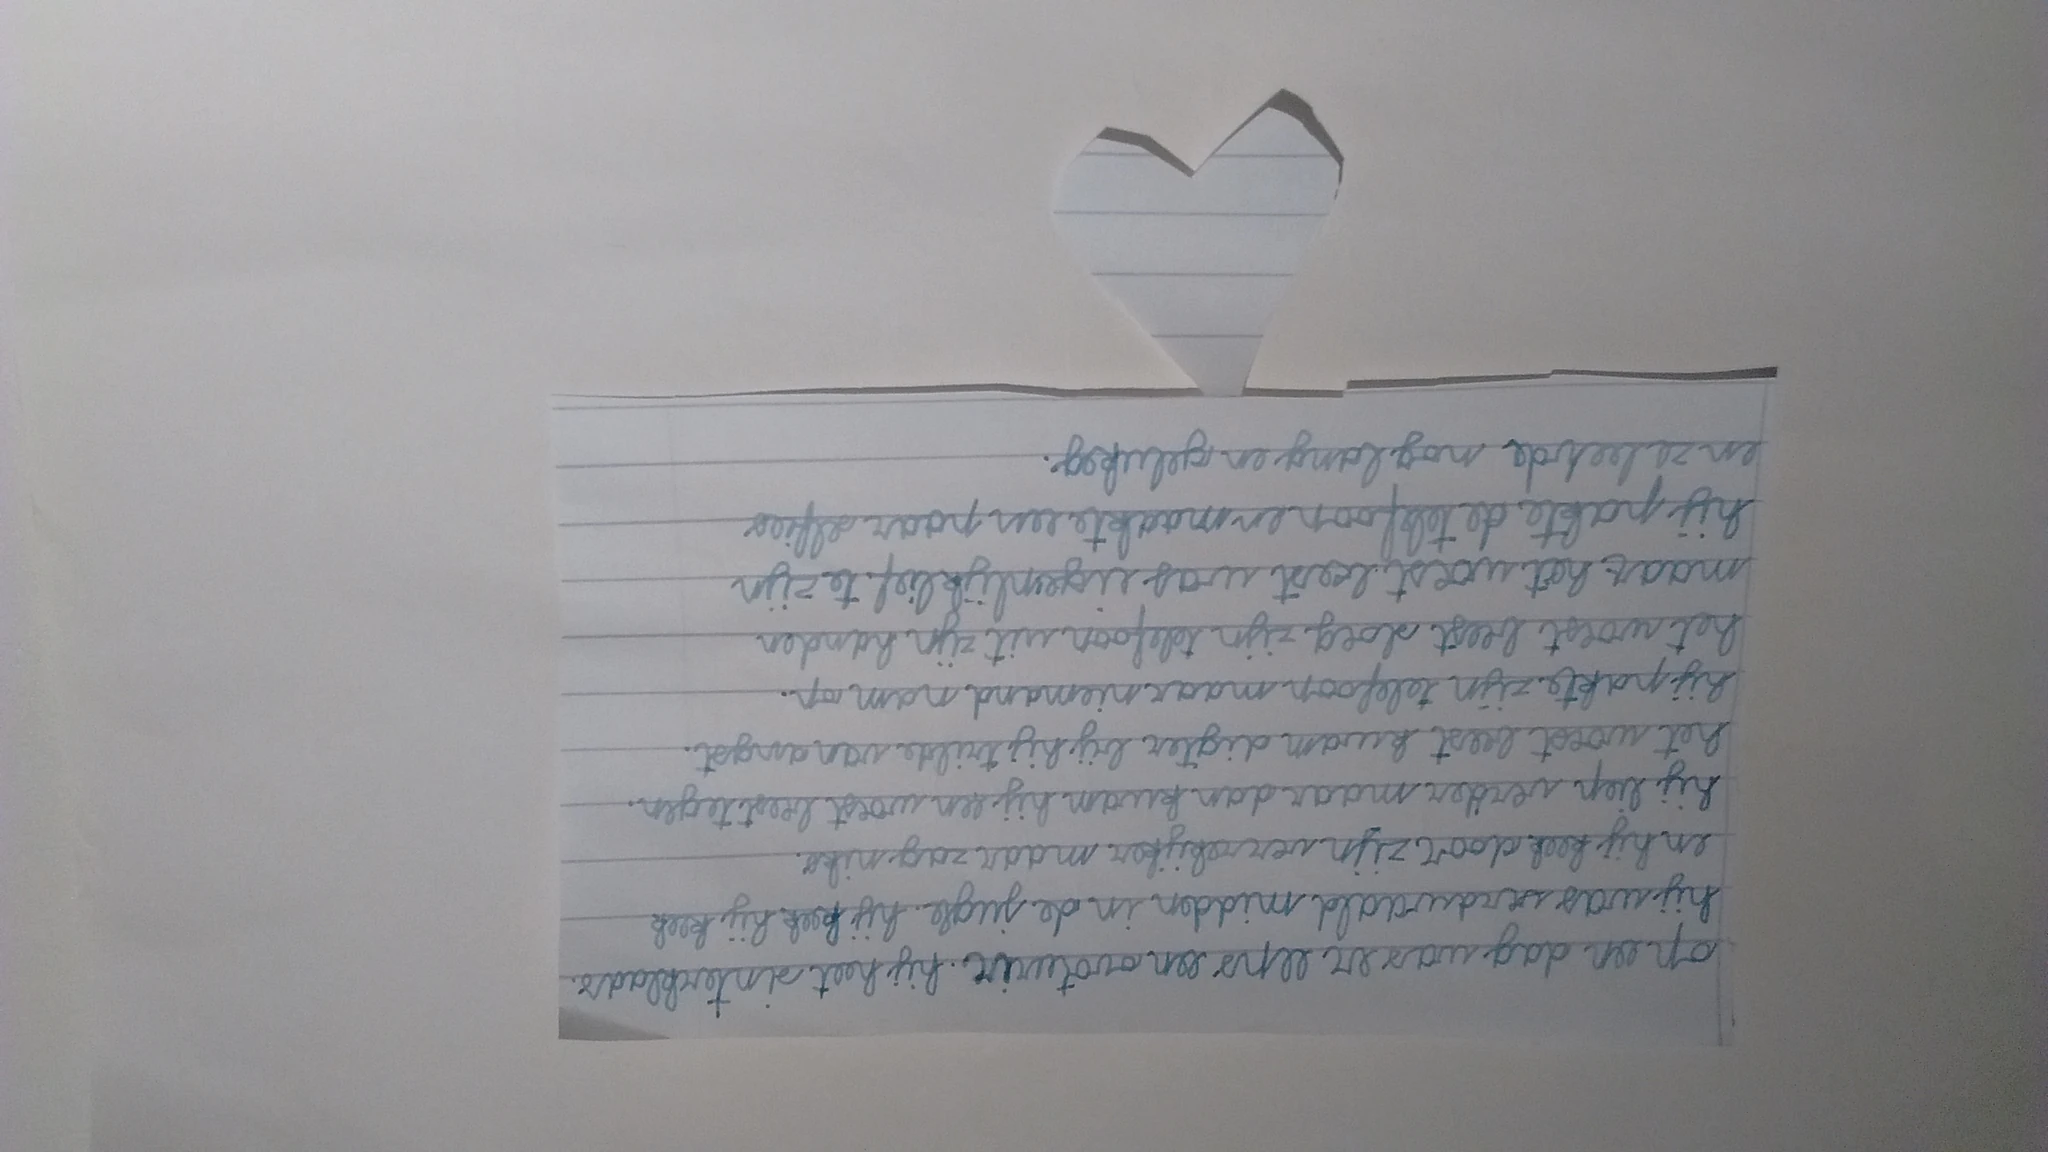 op een dag was er eens en avoturir. hij heet sinterklaas.
hij was verdwaald midden in de jugle. hij keek hij keek
en hij keek door zijn verrekijker maar zag niks.
hij liep verder maar dan kwam hij een woest beest tegen.
het woest beest kwam digter bij hij trilde van angst.
hij pakte zijn telefoon maar niemand nam op.
het woest beest sloeg zijn telefoon uit zijn handen
maar het woest beest was eigenlijk lief te zijn
hij pakte de telefoon en maakte een paar selfies
en ze leefde nog lang en gelukkig.